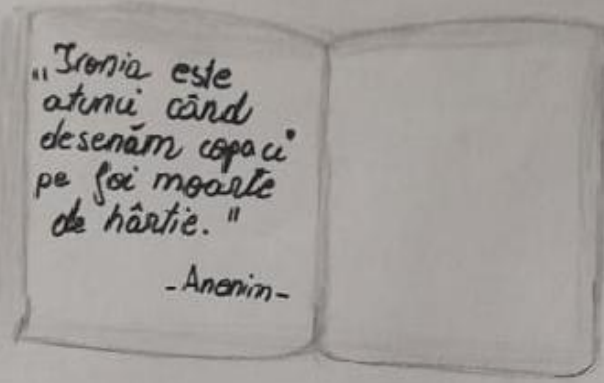 „Ironia este
atunci când
desenăm copaci
pe foi moarte
de hârtie."
-Anonim-